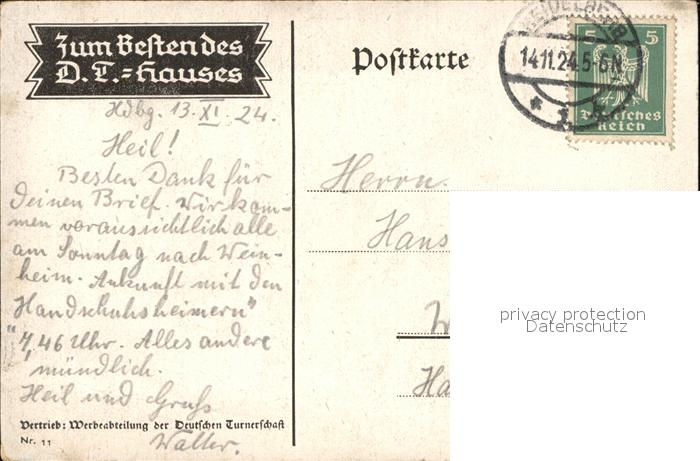 Zum Besten des
D. T.=Hauses
Postkarte
HEIDELBERG
14.11.24.5-6N
* 1 k
5 5
Deutsches
Reich
Hdbg. 13. XI. 24.
Heil!
Besten Dank für
Deinen Brief. Wir kom-
men voraussichtlich alle
am Sonntag nach Wein-
heim. Ankunft mit den
"Handschuhsheimern"
7,46 Uhr. Alles andere
mündlich.
Heil und Gruß
Walter.
Vertrieb: Werbeabteilung der Deutschen Turnerschaft
Nr. 11
Herrn
Hans
W
Ha
privacy protection
Datenschutz